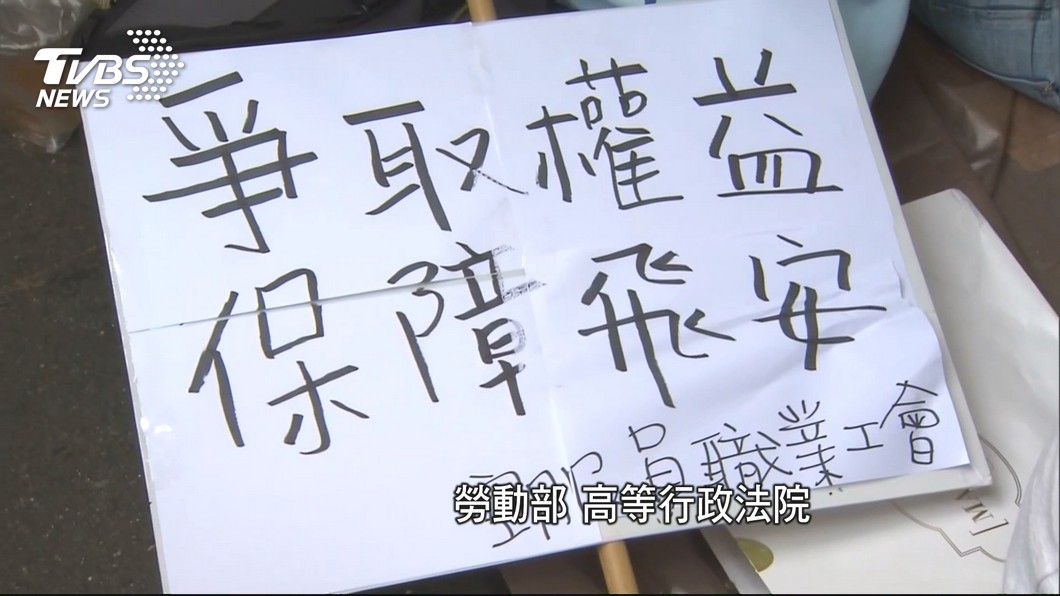 TVBS
NEWS
爭取權益
保障飛安
員職業工會
勞動部 高等行政法院